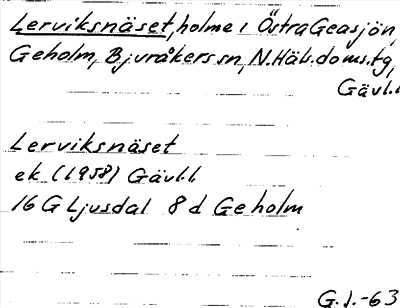 Lerviksnäset, holme i Östra Geasjön,
Geholm, Bjuråkers sn, N. Häls. doms. tg,
Gävl. l.
Lerviksnäset
ek. (1958) Gävl. l.
16 G Ljusdal 8 d Geholm
G. J. -63